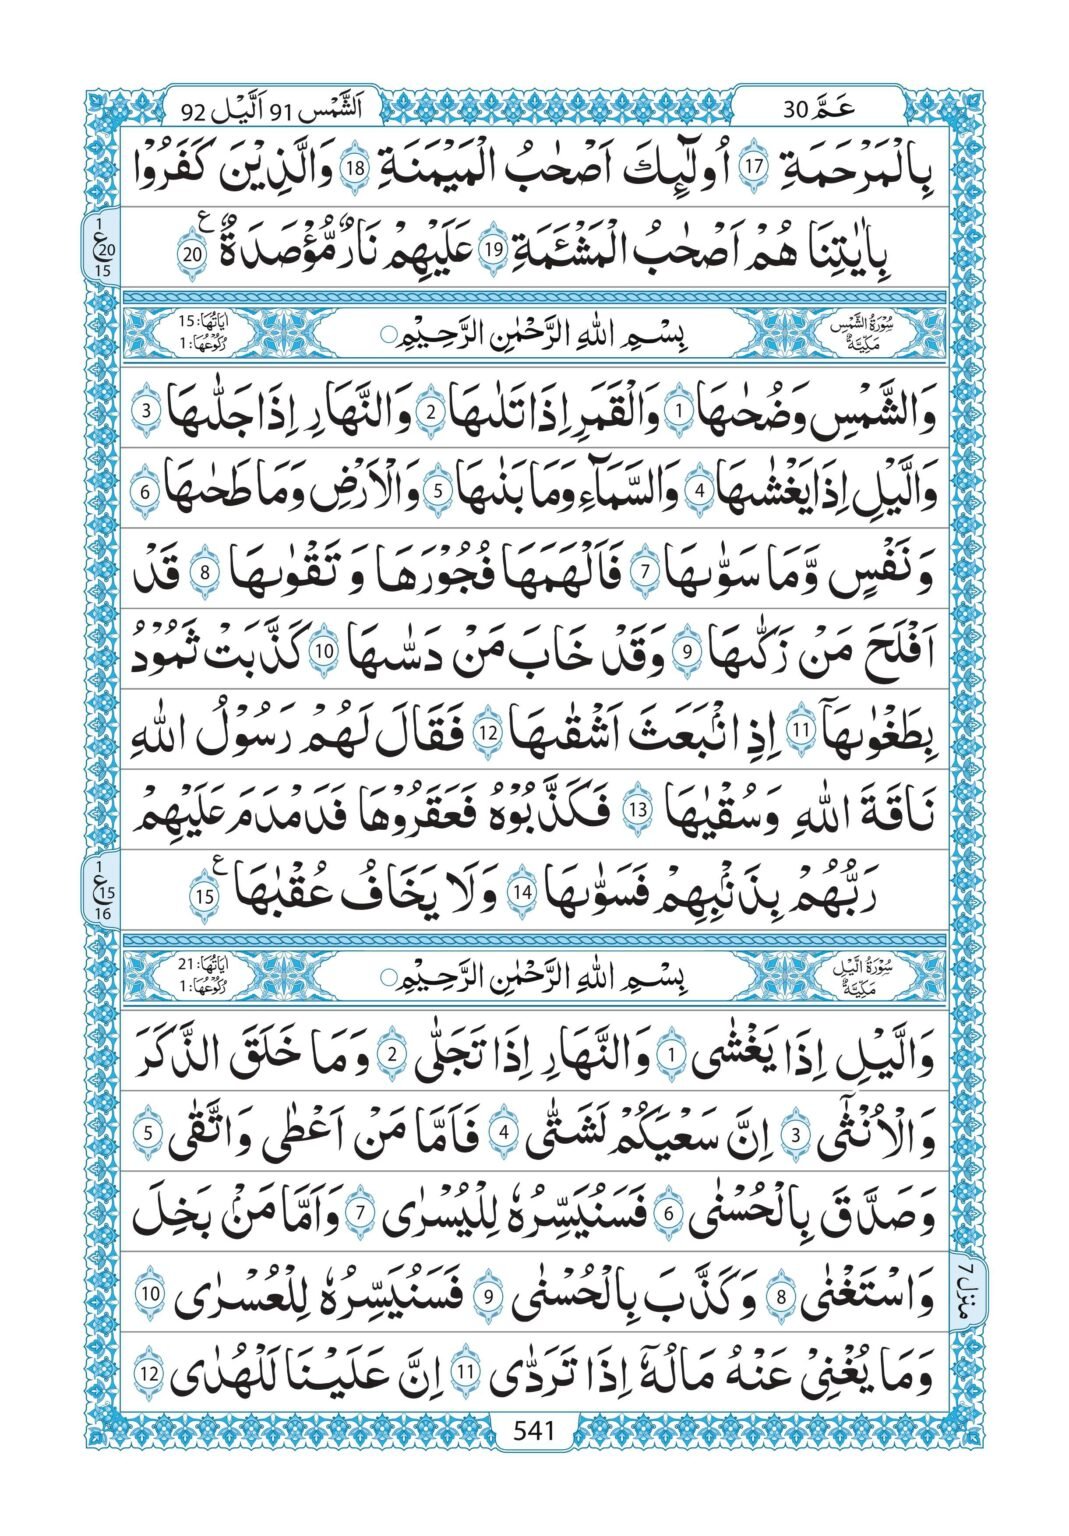 عَمَّ 30
اَلشَّمْسِ 91 اَلَّيْل 92
بِالْمَرْحَمَةِ 17 اُولٰٓئِكَ اَصْحٰبُ الْمَيْمَنَةِ 18 وَالَّذِيْنَ كَفَرُوْا
بِاٰيٰتِنَا هُمْ اَصْحٰبُ الْمَشْـَٔمَةِ 19 عَلَيْهِمْ نَارٌ مُّؤْصَدَةٌ 20 ع
1
ع 20
15
سُوْرَةُ الشَّمْسِ
مَكِّيَّةٌ
بِسْمِ اللّٰهِ الرَّحْمٰنِ الرَّحِيْمِ
اٰيَاتُهَا: 15
رُكُوْعُهَا: 1
وَالشَّمْسِ وَضُحٰىهَا 1 وَالْقَمَرِ اِذَا تَلٰىهَا 2 وَالنَّهَارِ اِذَا جَلّٰىهَا 3
وَالَّيْلِ اِذَا يَغْشٰىهَا 4 وَالسَّمَآءِ وَمَا بَنٰىهَا 5 وَالْاَرْضِ وَمَا طَحٰىهَا 6
وَنَفْسٍ وَّمَا سَوّٰىهَا 7 فَاَلْهَمَهَا فُجُوْرَهَا وَتَقْوٰىهَا 8 قَدْ
اَفْلَحَ مَنْ زَكّٰىهَا 9 وَقَدْ خَابَ مَنْ دَسّٰىهَا 10 كَذَّبَتْ ثَمُوْدُ
بِطَغْوٰىهَآ 11 اِذِ انْۢبَعَثَ اَشْقٰىهَا 12 فَقَالَ لَهُمْ رَسُوْلُ اللّٰهِ
نَاقَةَ اللّٰهِ وَسُقْيٰهَا 13 فَكَذَّبُوْهُ فَعَقَرُوْهَا فَدَمْدَمَ عَلَيْهِمْ
رَبُّهُمْ بِذَنْۢبِهِمْ فَسَوّٰىهَا 14 وَلَا يَخَافُ عُقْبٰهَا 15 ع
1
ع 15
16
سُوْرَةُ الَّيْلِ
مَكِّيَّةٌ
بِسْمِ اللّٰهِ الرَّحْمٰنِ الرَّحِيْمِ
اٰيَاتُهَا: 21
رُكُوْعُهَا: 1
وَالَّيْلِ اِذَا يَغْشٰى 1 وَالنَّهَارِ اِذَا تَجَلّٰى 2 وَمَا خَلَقَ الذَّكَرَ
وَالْاُنْثٰٓى 3 اِنَّ سَعْيَكُمْ لَشَتّٰى 4 فَاَمَّا مَنْ اَعْطٰى وَاتَّقٰى 5
وَصَدَّقَ بِالْحُسْنٰى 6 فَسَنُيَسِّرُهٗ لِلْيُسْرٰى 7 وَاَمَّا مَنْۢ بَخِلَ
وَاسْتَغْنٰى 8 وَكَذَّبَ بِالْحُسْنٰى 9 فَسَنُيَسِّرُهٗ لِلْعُسْرٰى 10
منزل 7
وَمَا يُغْنِىْ عَنْهُ مَالُهٗٓ اِذَا تَرَدّٰى 11 اِنَّ عَلَيْنَا لَلْهُدٰى 12
541